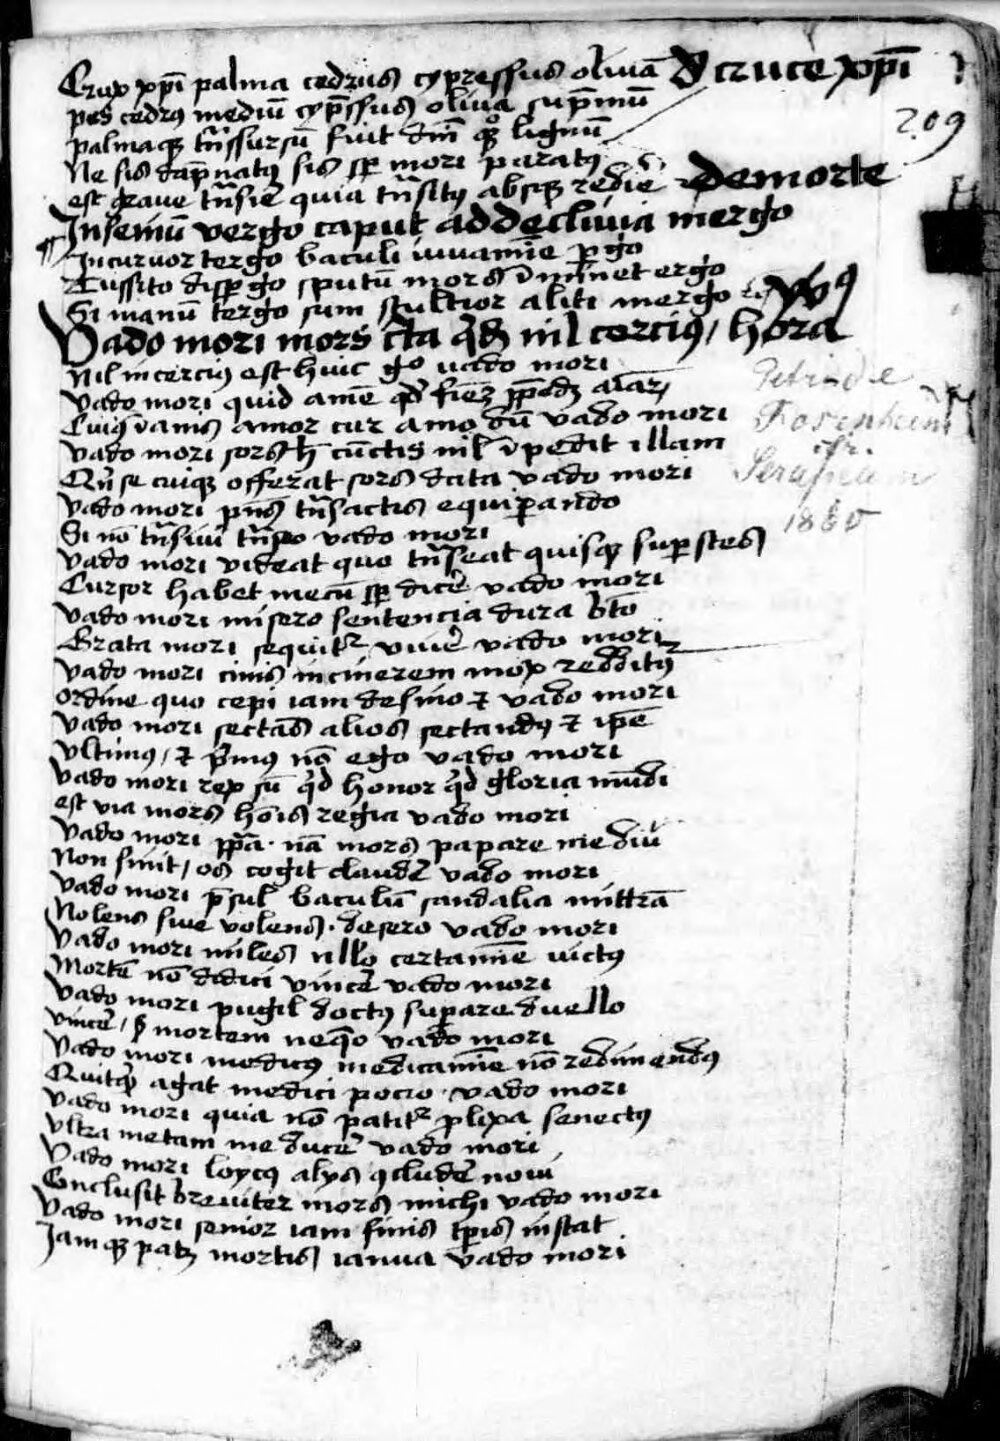 Crux xp̄i palma cedrus cypressus oliua D̄ cruce xp̄i
pes cedrꝰ mediū cyp̄ssus oliua sup̄mū
209
palmaqꝫ tn̄ssursū fuit dn̄i qͦꝫ lignū
Ne sis dāpnatꝰ sis sꝑ mori paratꝰ
est graue tn̄sire quia tn̄sitꝰ absqꝫ rediē De morte
In seniū vergo caput ad decliuia mergo
Incuruor tergo baculi iuuamīe ꝑgo
Tussito disꝑgo sputū mors īminet ergo
Si manū tergo sum stultior aliti mergo
Vado mori mors c̄ta qͥdē nil cerciꝰ / hora
Nil incerciꝰ est huic gͦ vado mori
Vado mori quid amē qd̄
Cuiꝰ īanis amor cur amo dū vado mori
Vado mori sors h̄ cūctis nil īpedit illam
Qn̄ se cuiqꝫ offerat sors data vado mori
Vado mori p̄ns tn̄sactis equiꝑando
Si nō tn̄siui tn̄seo vado mori
Vado mori videat quo tn̄seat quisqꝫ suꝑstes
Cursor habet mecū sꝑ dicē vado mori
Vado mori misero sentencia dura bt̄o
Grata mori sequitr̄ viuē vado mori
Vado mori cinis in cinerem mox redditꝰ
Ordine quo cepi iam desino ⁊ vado mori
Vado mori sectās alios sectandꝰ ⁊ ip̄e
Vltimꝰ / ⁊ p̄mꝰ nō ego vado mori
Vado mori rex sū qͥd honor qͥd gloria mūdi
est via mors hoīs regia vado mori
Vado mori pp̄a · nā mors papare me diu
Non sinit / os cogit claudē vado mori
Vado mori p̄sul baculū sandalia mittrā
Nolens siue volens · desero vado mori
Vado mori miles illo certamīe victꝰ
Mortē nō didici vincē vado mori
Vado mori pugil doctꝰ suꝑare duello
vincē / mortem neqͣo vado mori
Vado mori medicꝰ medicamīe nō redimendꝰ
Quitqͥd agat medici pocio · vado mori
Vado mori quia nō patitr̄ ꝓlixa senectꝰ
Vltra metam me ducē vado mori
Vado mori loycꝰ alijs ꝯcludē noui
Conclusit breuiter mors michi vado mori
Vado mori senior iam finis tꝑis instat
Iamqꝫ patꝫ mortis ianua vado mori
Petri de
Rosenheim
cfr.
Serapeum
1880